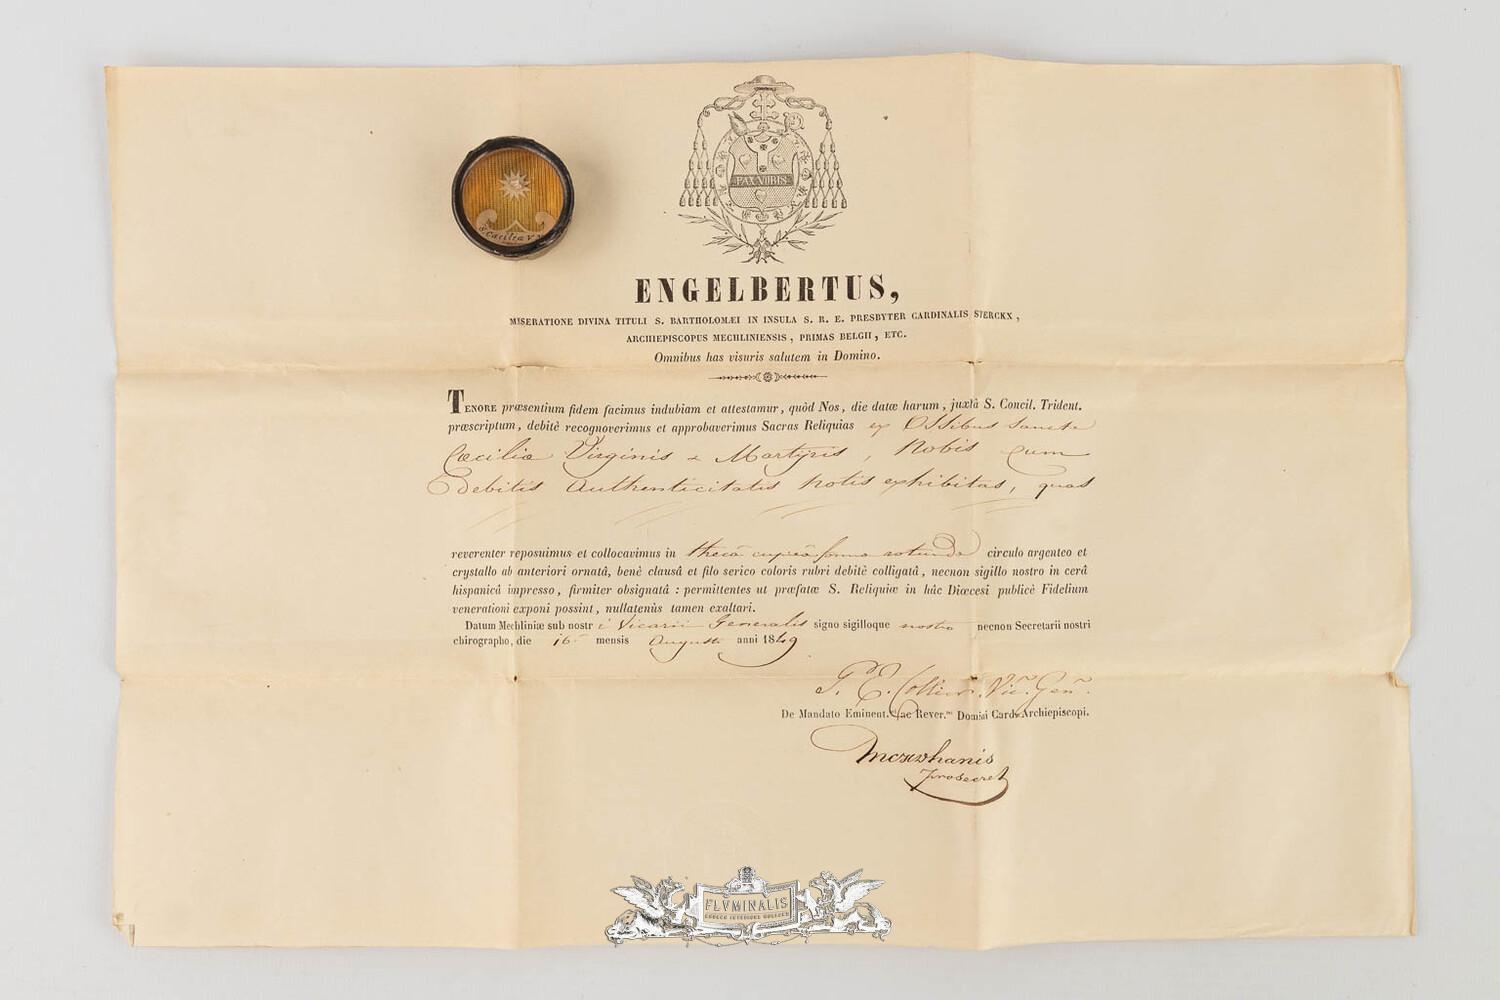 PAX VOBIS
S. Caecilia V.
ENGELBERTUS,
MISERATIONE DIVINA TITULI S. BARTHOLOMÆI IN INSULA S. R. E. PRESBYTER CARDINALIS STERCKX,
ARCHIEPISCOPUS MECHLINIENSIS, PRIMAS BELGII, ETC.
Omnibus has visuris salutem in Domino.
TENORE præsentium fidem facimus indubiam et attestamur, quòd Nos, die datæ harum, juxtà S. Concil. Trident.
præscriptum, debitè recognoverimus et approbaverimus Sacras Reliquias ex Ossibus Sanctæ
Cæciliæ Virginis & Martyris, Nobis cum
debitis authenticitatis notis exhibitas, quas
reverenter reposuimus et collocavimus in thecâ cupreâ formæ rotundæ circulo argenteo et
crystallo ab anteriori ornatâ, benè clausâ et filo serico coloris rubri debitè colligatâ, necnon sigillo nostro in cerâ
hispanicâ impresso, firmiter obsignatâ : permittentes ut præfatæ S. Reliquiæ in hâc Diœcesi publicè Fidelium
venerationi exponi possint, nullatenùs tamen exaltari.
Datum Mechliniæ sub nostri Vicarii Generalis signo sigilloque nostro necnon Secretarii nostri
chirographo, die 16 mensis Augusti anni 1849
Vic. Gen.
De Mandato Eminent. ac Rever. Domini Card. Archiepiscopi.
prosecret
FLVMINALIS